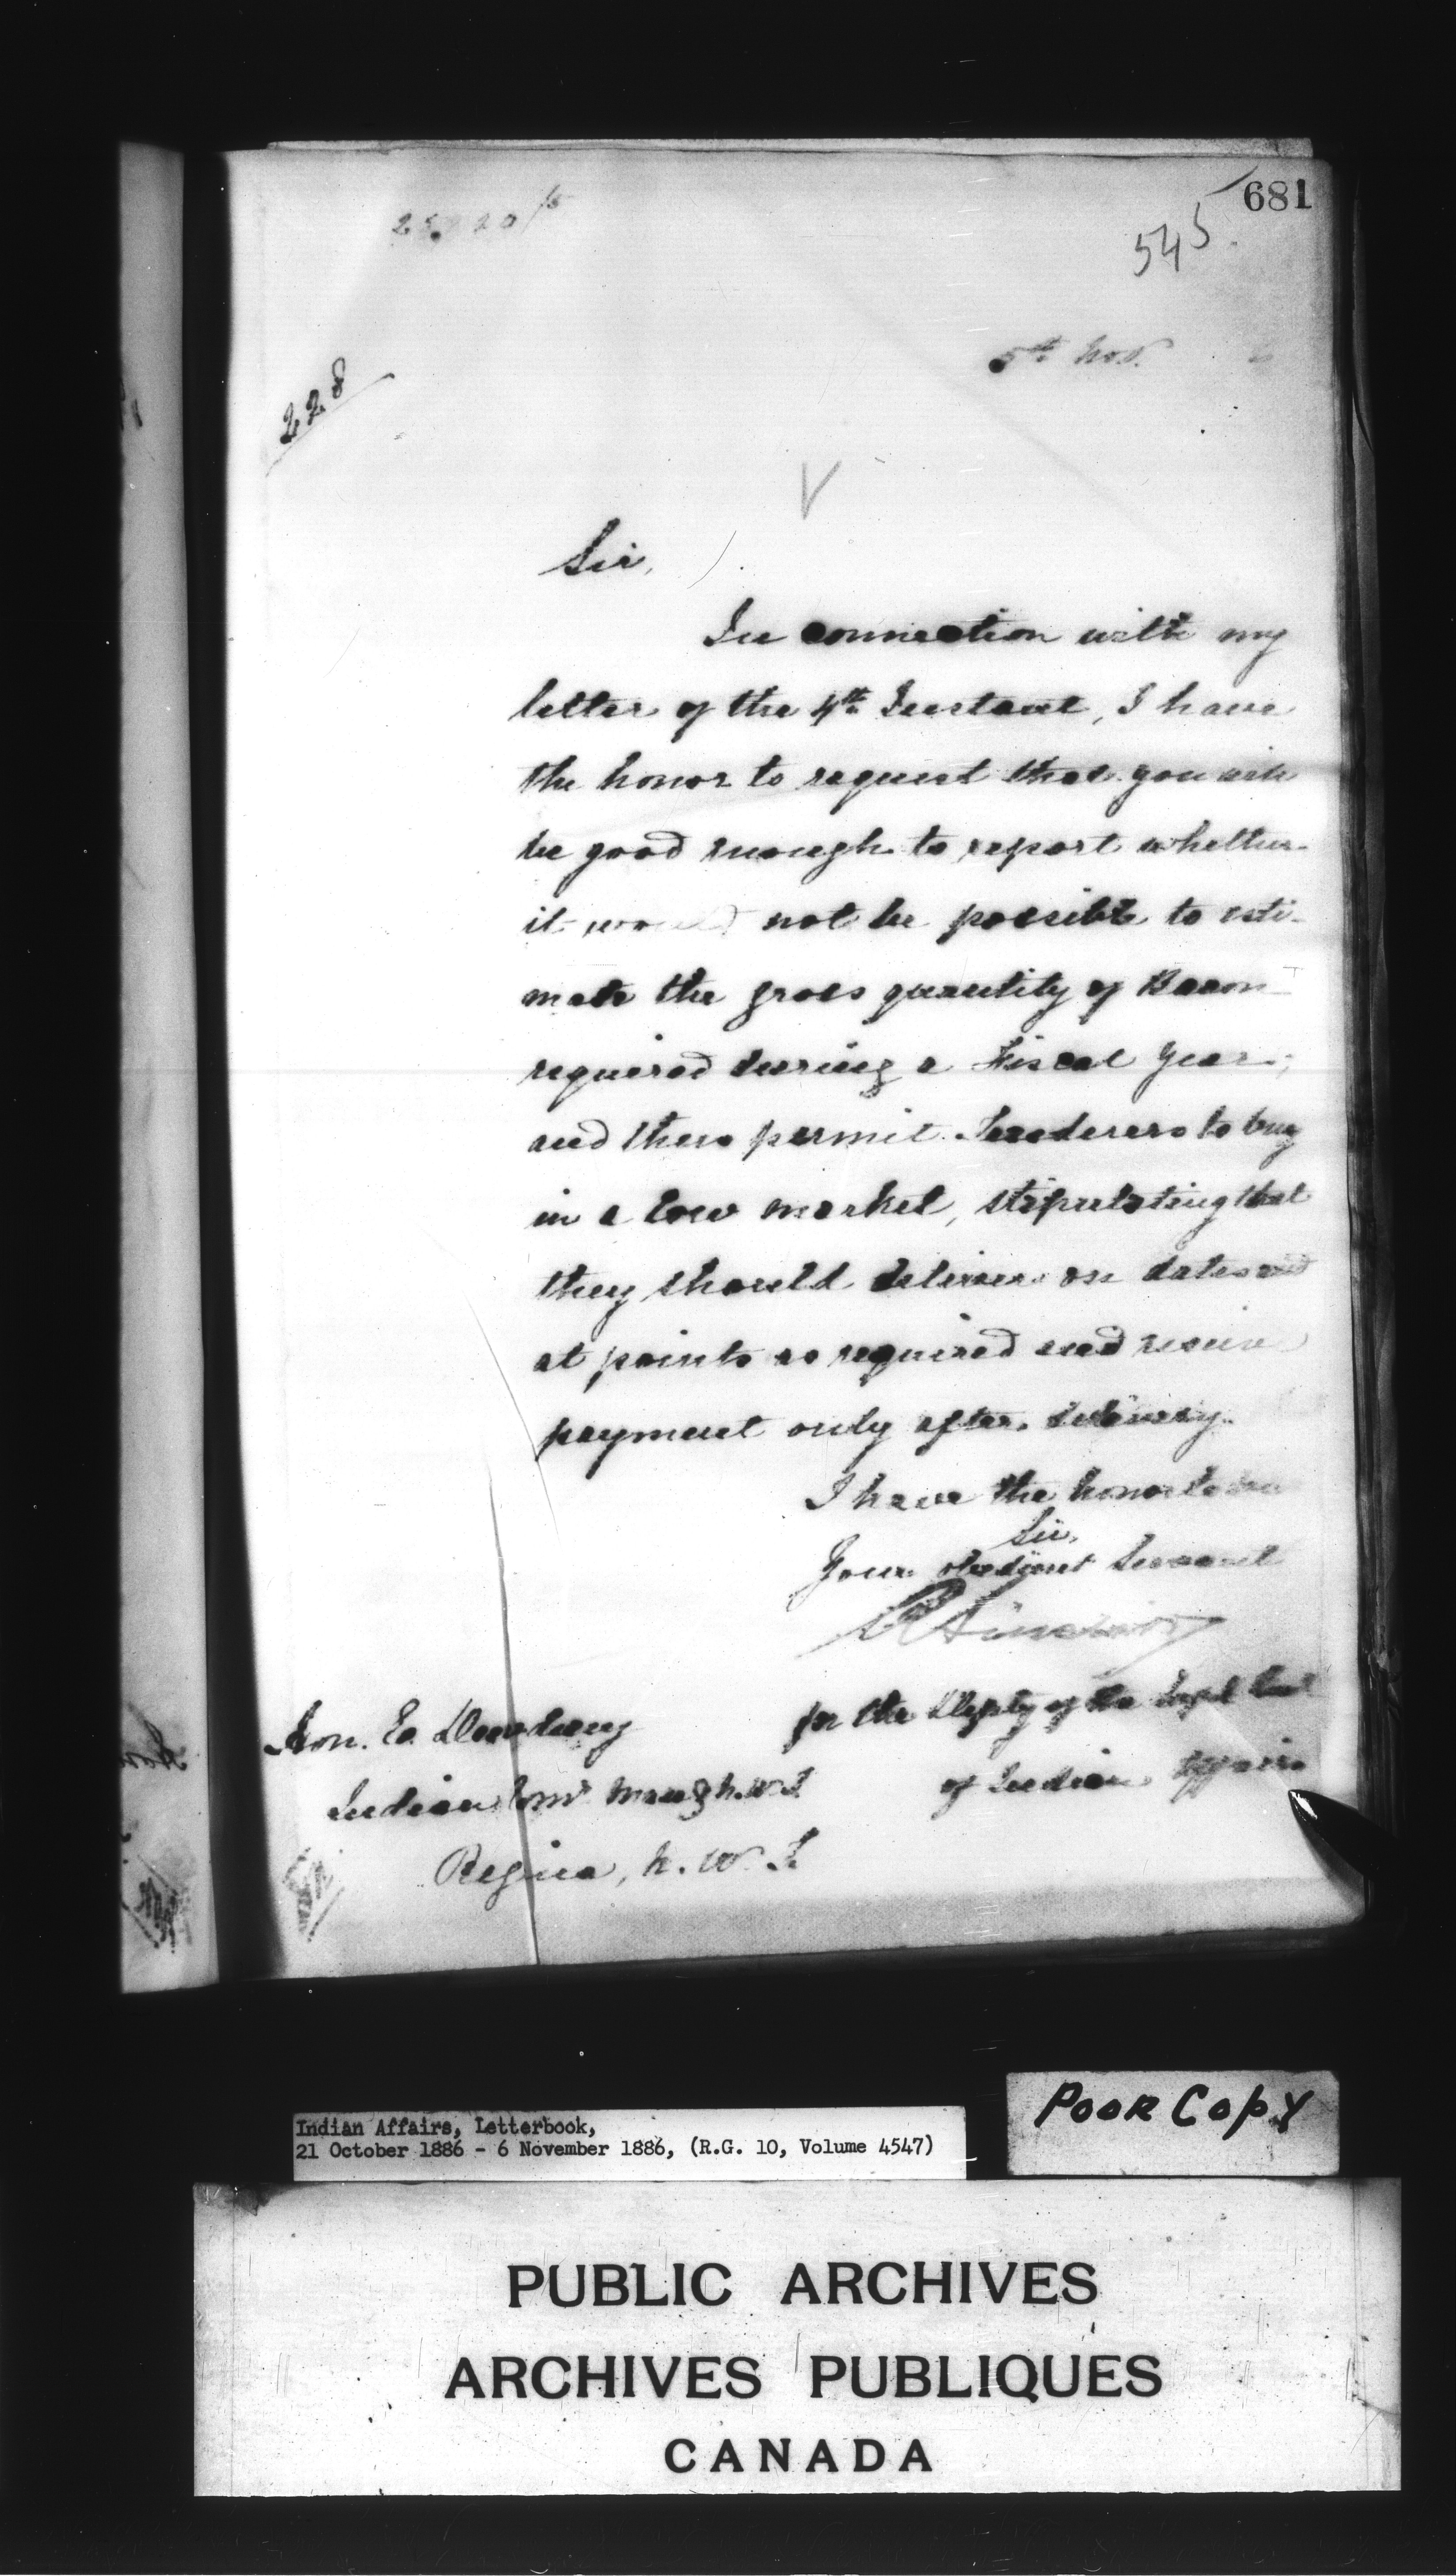 681
545
5th Nov. 6
228
Sir,
In connection with my
letter of the 4th Instant, I have
the honor to request that you will
be good enough to report whether
it would not be possible to esti-
mate the gross quantity of Bacon
required during a Fiscal year,
and then permit Tenderers to buy
in a low market, stipulating that
they should deliver on dates and
at points as required and receive
payment only after delivery.
I have the honor to be
Sir,
Your obedient Servant
R Sinclair
for the Depty of the Supt Genl
of Indian Affairs
Hon. E. Dewdney
Indian Comr Man & N.W.T
Regina, N.W.T.
POOR COPY
Indian Affairs, Letterbook,
21 October 1886 - 6 November 1886, (R.G. 10, Volume 4547)
PUBLIC ARCHIVES
ARCHIVES PUBLIQUES
CANADA